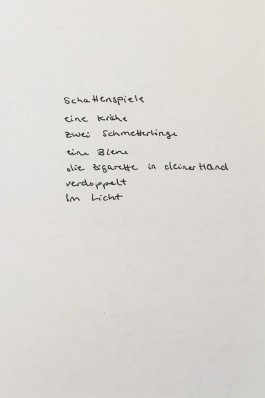 Schattenspiele
eine Krähe
zwei Schmetterlinge
eine Biene
die Zigarette in deiner Hand
verdoppelt
im Licht